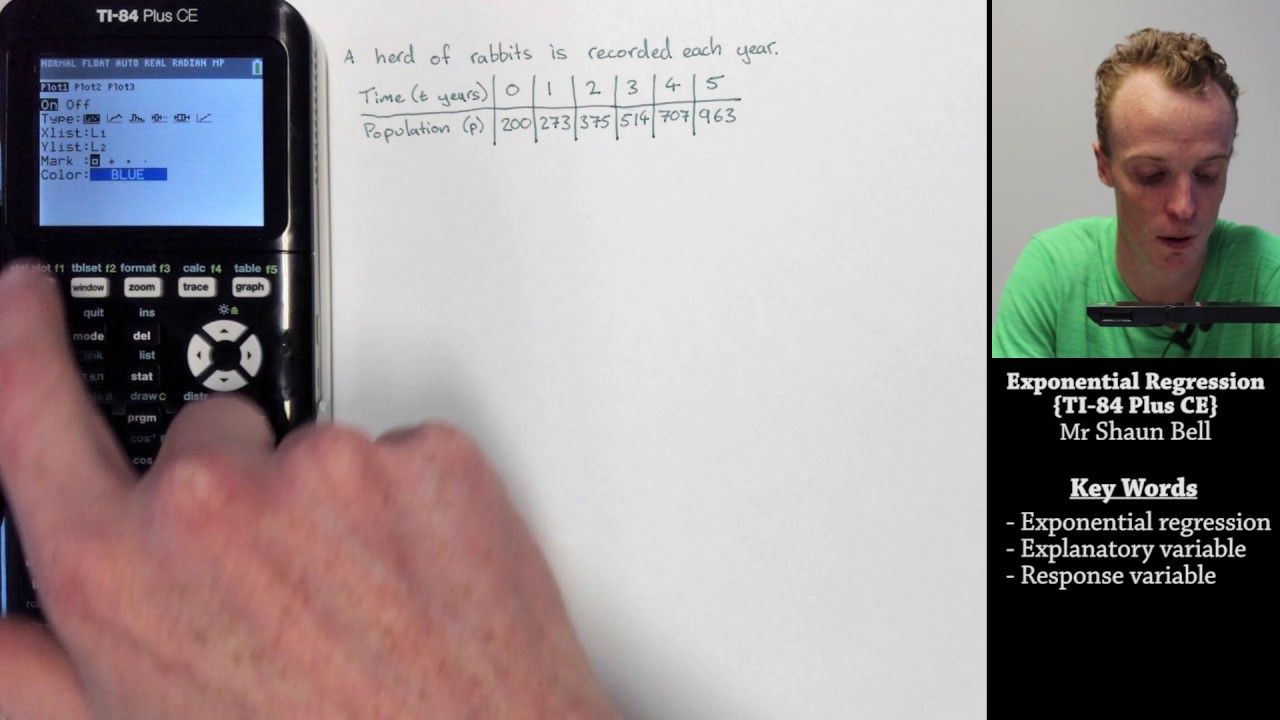 TI-84 Plus CE
NORMAL FLOAT AUTO REAL RADIAN MP
Plot1 Plot2 Plot3
On Off
Type:
Xlist:L1
Ylist:L2
Mark :
Color: BLUE
plot f1 tblset f2 format f3 calc f4 table f5
window zoom trace graph
quit ins
mode del
list
stat
draw C distr
prgm
cos
A herd of rabbits is recorded each year.
Time (t years) 0 1 2 3 4 5
Population (p) 200 273 375 514 707 963
Exponential Regression
{TI-84 Plus CE}
Mr Shaun Bell
Key Words
- Exponential regression
- Explanatory variable
- Response variable